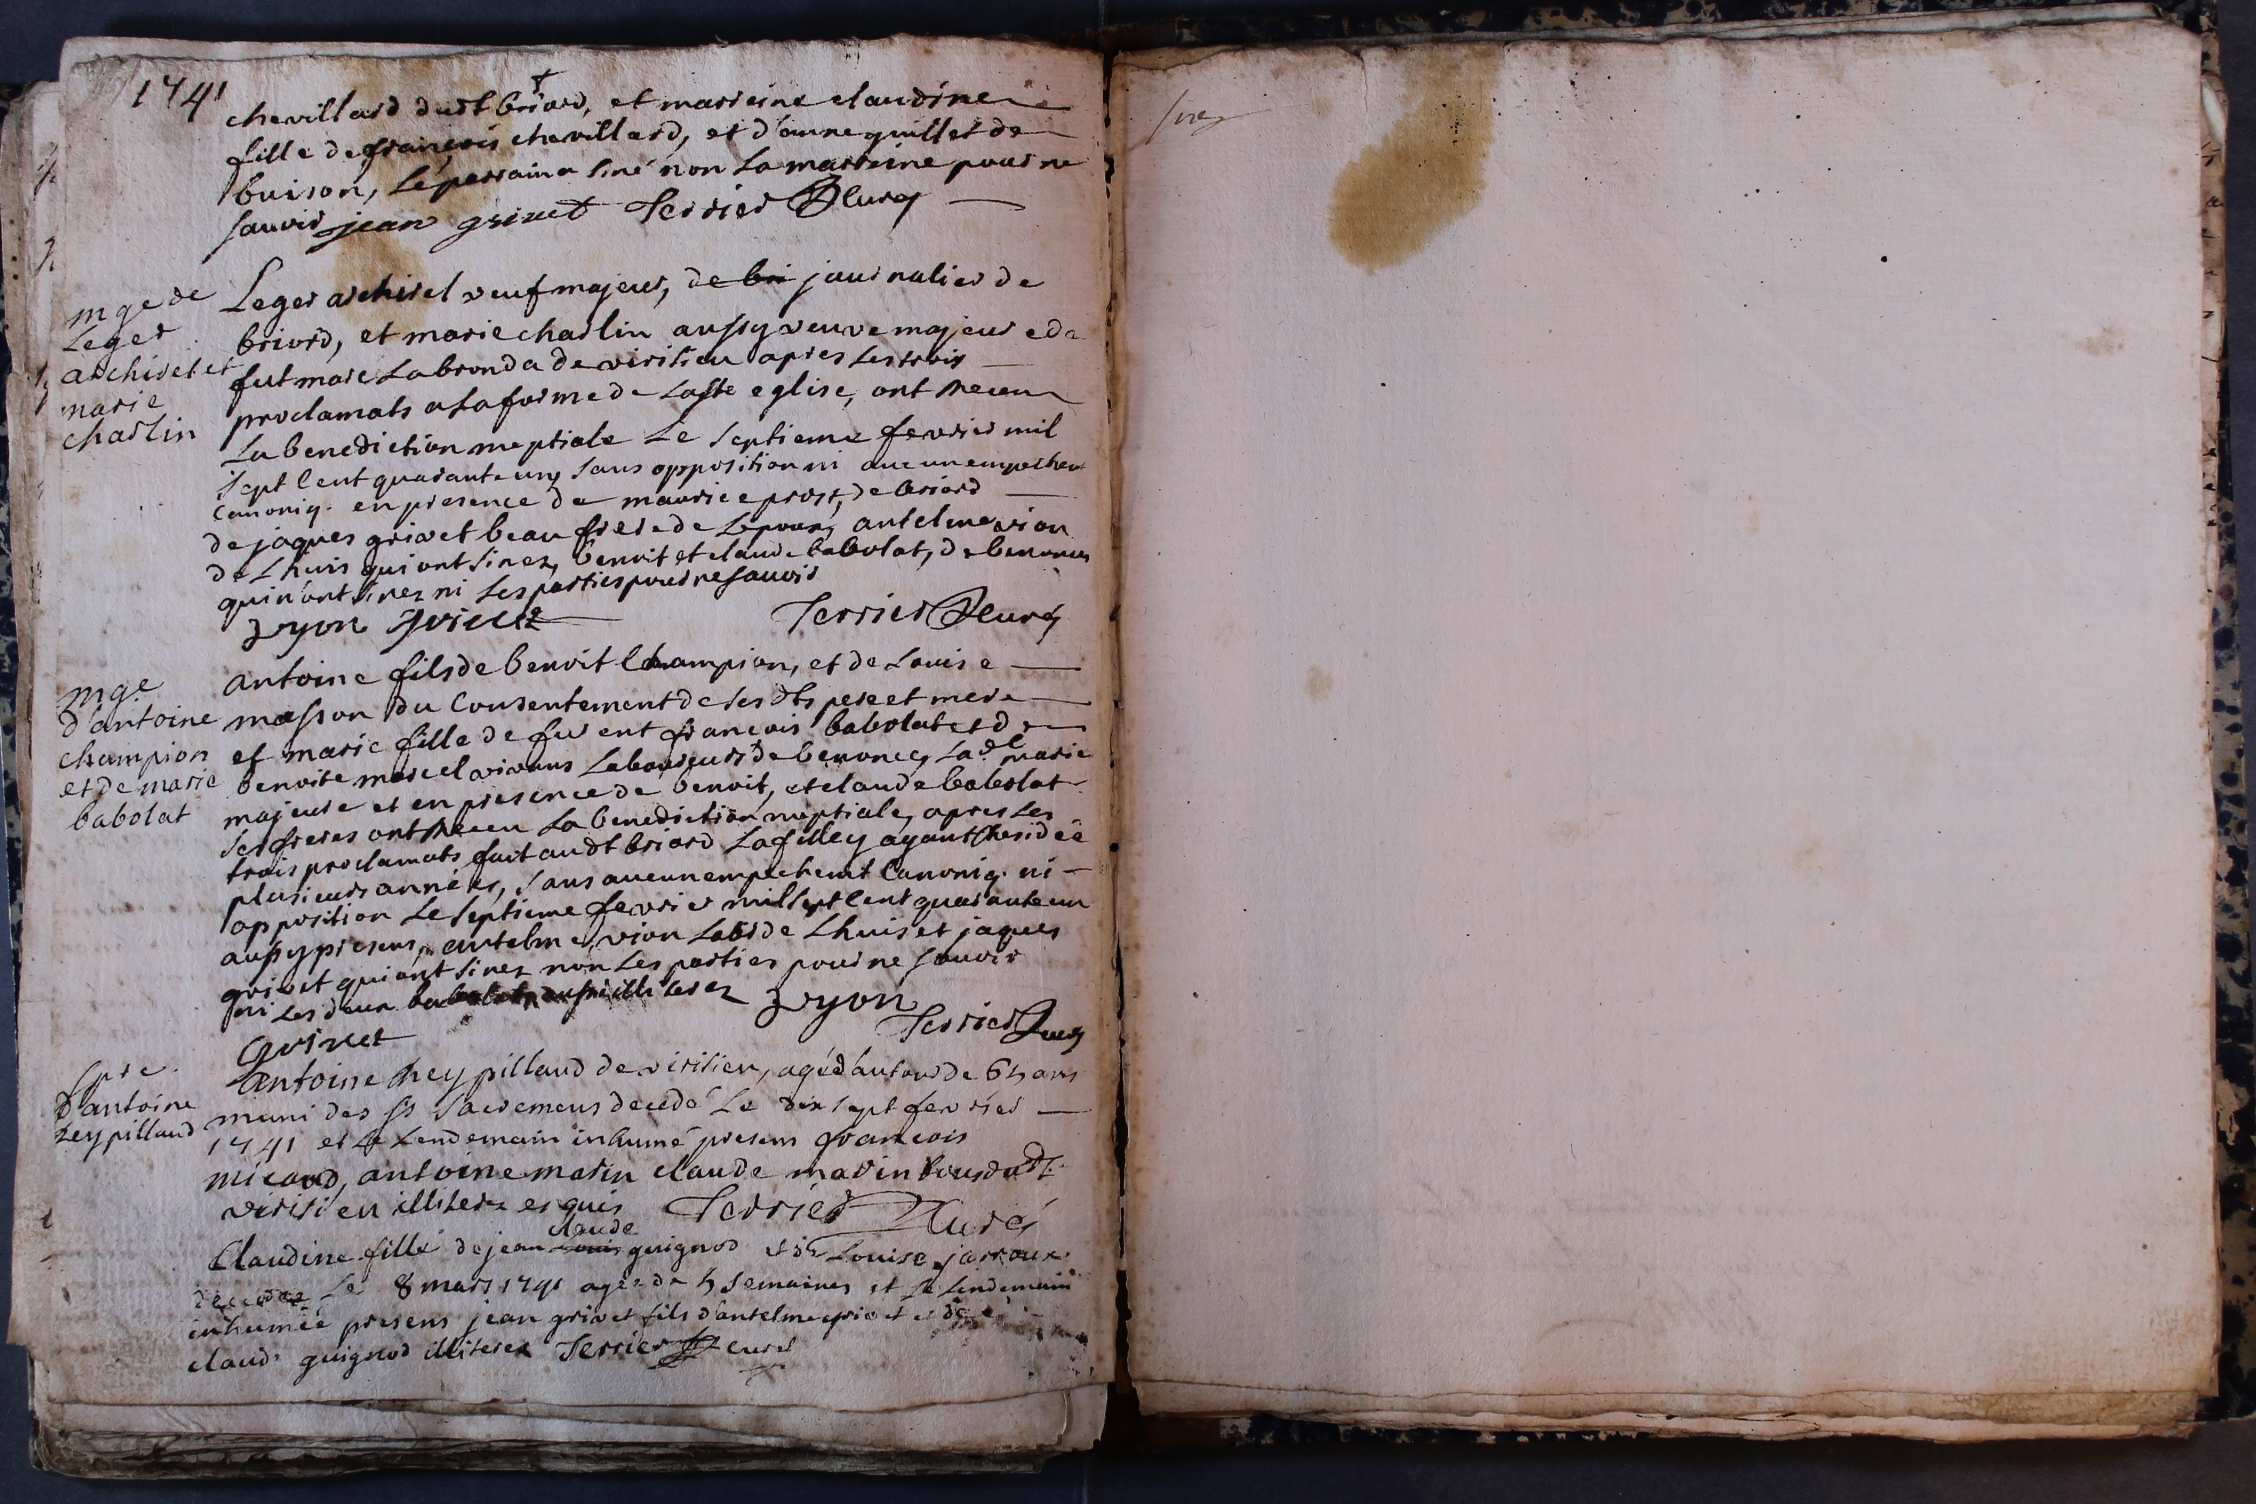 1741
chevillard dudt briord, et marreine claudine
fille de françois chevillard, et d'anne guillet de
buison, le parrain a siné non la marreine pour ne
savoir jean grivet Terrier Curé
mge de
Leger
archirel et
marie
charlin
Leger archirel veuf majeur, de bri journalier de
briord, et marie charlin aussy veuve majeure de
fut marc Labronda de virisieu apres les trois
proclamats a la forme de laste eglise, ont receu
La benediction nuptiale Le septieme fevrier mil
sept cent quarante un, sans opposition ni aucun empechemt
canoniq. en presence de maurice prost, de briord
de jaques grivet beau frere de L'epoux, antelme vion
de Lhuis qui ont sinez, benoit et claude babolat, de benonces
qui n'ont sinez ni les parties pour ne savoir
Vyon grivet Terrier Curé
mge
d'antoine
champion
et de marie
babolat
antoine fils de benoit Champion, et de Louise
masson du Consentement de ses dts pere et mere
et marie fille de fut françois babolat et de
benoite morel vivans Laboureurs de benonce, la de marie
majeure et en presence de benoit, et claude babolat
ses freres ont receu La benediction nuptiale, apres Les
trois proclamats fait audt briord La fille y ayant residée
plusieurs années, sans aucun empechemt Canoniq. ni
opposition Le septieme fevrier mil sept cent quarante un
aussy presens, antelme vion Labr de Lhuis et jaques
grivet qui ont sinez non Les parties pour ne savoir
ni Les deux babolat aussi illiterez Vyon
Grivet Terrier Curé
spre.
d'antoine
reypillaud
antoine reypillaud de virisieu, agé d'autour de 65 ans
muni des ss sacremens decedé Le dix sept fevrier
1741 et Le Lendemain inhumé presens françois
micoud, antoine marin claude marin tous dudt
virisieu illiterez enquis Terrier Curé
Claudine fille de jean claude guignod et de Louise jarroux
decedée Le 8 mars 1741 agée de 5 semaines et le lendemain
inhumée presens jean grivet fils d'antelme grivet et de
claude guignod illiterez Terrier curé